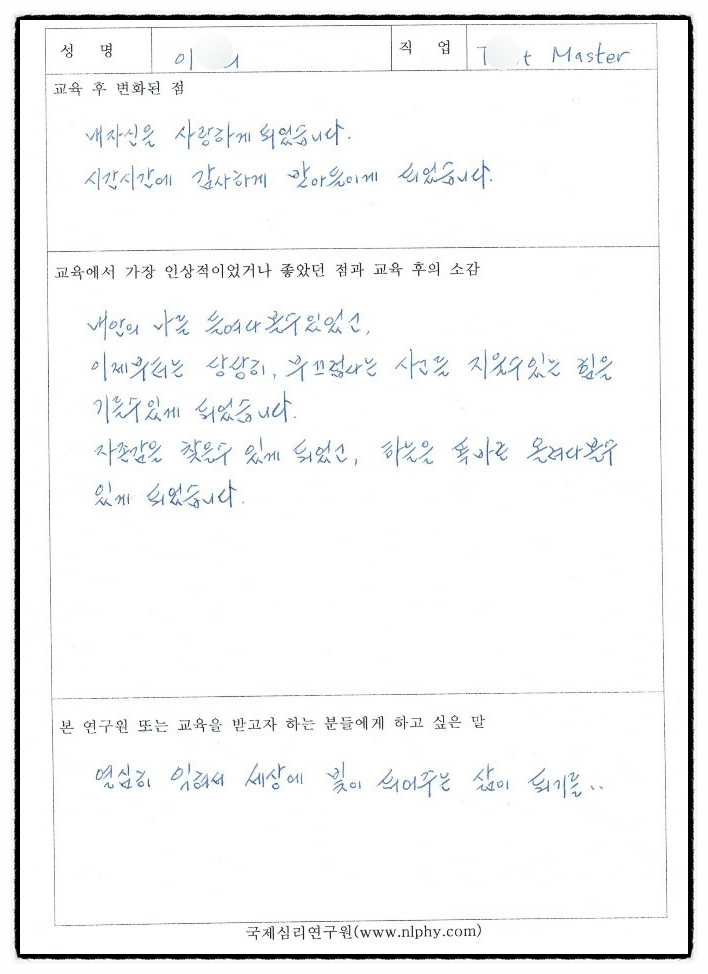 성 명 이
직 업 T t Master
교육 후 변화된 점
내자신을 사랑하게 되었습니다.
시간시간에 감사하게 받아들이게 되었습니다.
교육에서 가장 인상적이었거나 좋았던 점과 교육 후의 소감
내안의 나를 들여다볼수있었고,
이제부터는 당당히, 부끄럽다는 사고를 지울수있는 힘을
기를수있게 되었습니다.
자존감을 찾을수 있게 되었고, 하늘을 똑바로 올려다볼수
있게 되었습니다.
본 연구원 또는 교육을 받고자 하는 분들에게 하고 싶은 말
열심히 익혀서 세상에 빛이 되어주는 삶이 되기를..
국제심리연구원(www.nlphy.com)